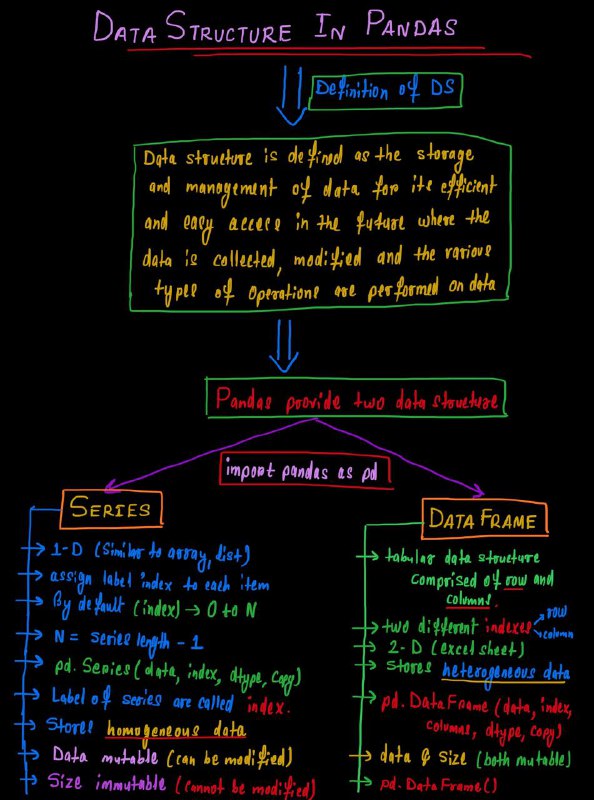 DATA STRUCTURE IN PANDAS
Definition of DS
Data structure is defined as the storage
and management of data for its efficient
and easy access in the future where the
data is collected, modified and the various
types of operations are performed on data
Pandas provide two data structure
import pandas as pd
SERIES
1-D (Similar to array, list)
assign label index to each item
By default (index) → 0 to N
N = series length - 1
pd. Series (data, index, dtype, copy)
Label of series are called index.
Stores homogeneous data
Data mutable (can be modified)
Size immutable (cannot be modified)
DATA FRAME
tabular data structure
comprised of row and
columns.
two different indexes
row
column
2-D (excel sheet)
stores heterogeneous data
pd. DataFrame (data, index,
columns, dtype, copy)
data & size (both mutable)
pd. DataFrame ()